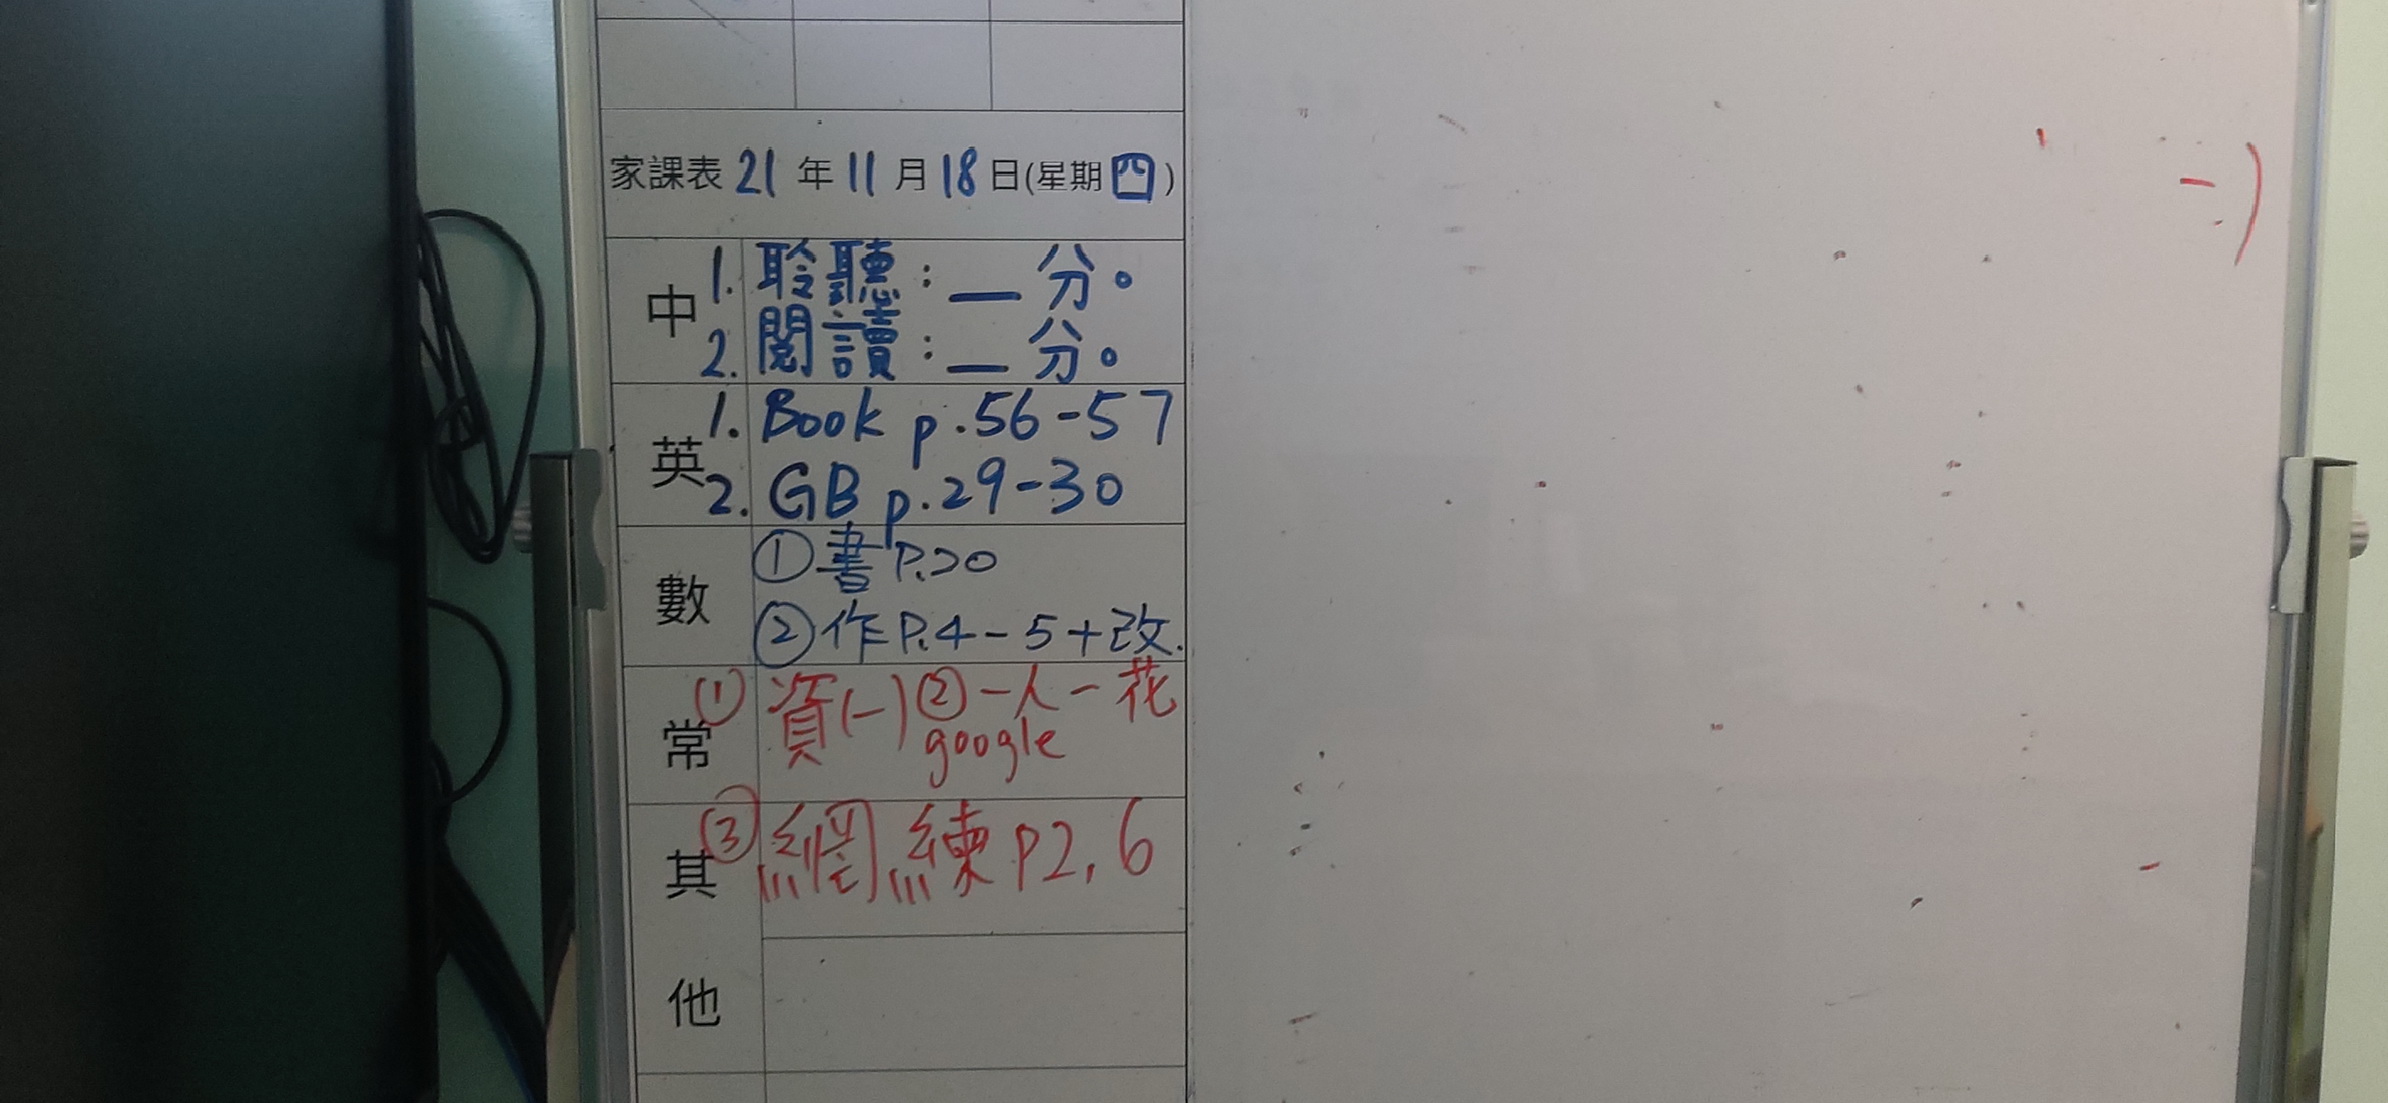 家課表 21 年 11 月 18 日(星期 四)
中 1. 聆聽：__ 分。
2. 閱讀：__ 分。
英 1. Book p.56-57
2. GB p.29-30
數 ① 書 P.20
② 作 P.4-5+改.
常 ① 資(一) ② 一人一花
google
其他 ③ 網練 P2, 6